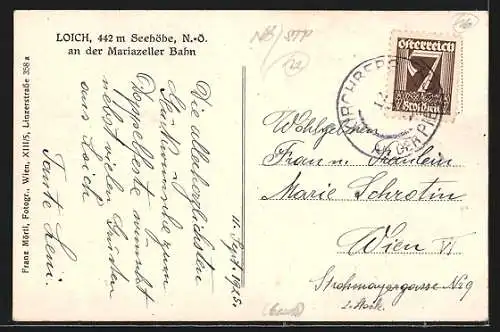 LOICH, 442 m Seehöhe, N.-Ö.
an der Mariazeller Bahn
Franz Mörtl, Fotogr., Wien, XIII/5, Linzerstraße 358 a
Die allerherzlichsten
Glückwünsche zum
Wiegenfeste nebst
nebst vielen Grüßen
aus Loich
Tante Leni.
11. Sept.
Österreich
7
Groschen
KIRCHBERG
AN DER PIEL
Wohlgeboren
Frau u. Fräulein
Marie Schrotin
Wien VI
Strohmayergasse No 9
2. Stock.